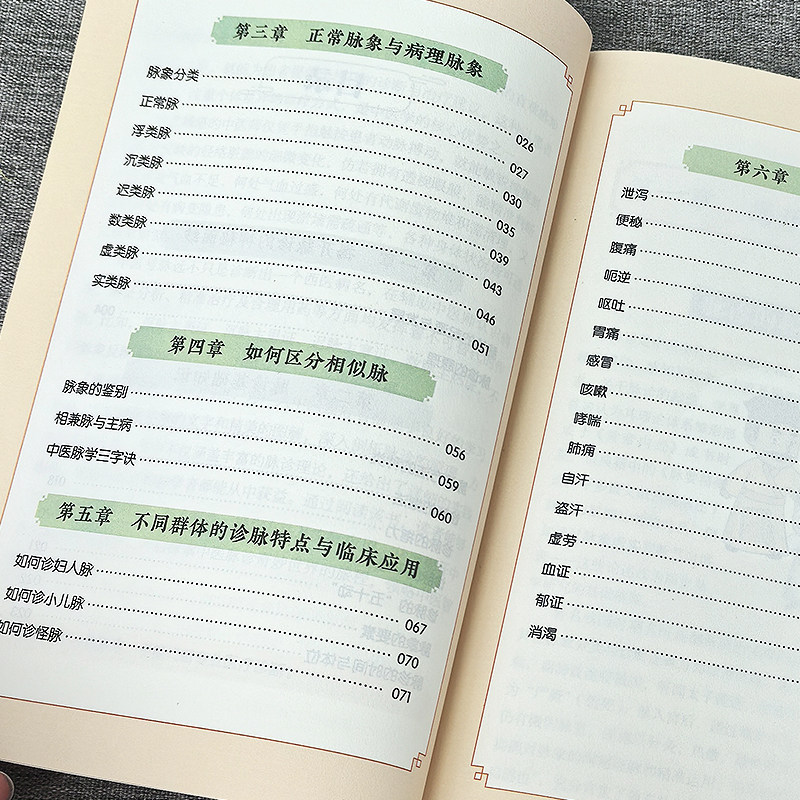 第三章 正常脉象与病理脉象
脉象分类 026
正常脉 027
浮类脉 030
沉类脉 035
迟类脉 039
数类脉 043
虚类脉 046
实类脉 051
第四章 如何区分相似脉
脉象的鉴别 056
相兼脉与主病 059
中医脉学三字诀 060
第五章 不同群体的诊脉特点与临床应用
如何诊妇人脉 067
如何诊小儿脉 070
如何诊怪脉 071
第六章
泄泻
便秘
腹痛
呃逆
呕吐
胃痛
感冒
咳嗽
哮喘
肺痈
自汗
盗汗
虚劳
血证
郁证
消渴